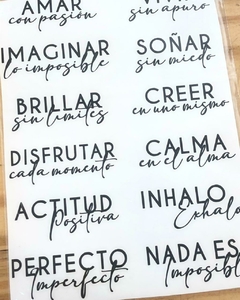 AMAR
con pasión
VIVIR
sin apuro
IMAGINAR
lo imposible
SOÑAR
sin miedo
BRILLAR
sin límites
CREER
en uno mismo
DISFRUTAR
cada momento
CALMA
en el alma
ACTITUD
Positiva
INHALO
Exhalo
PERFECTO
Imperfecto
NADA ES
Imposible